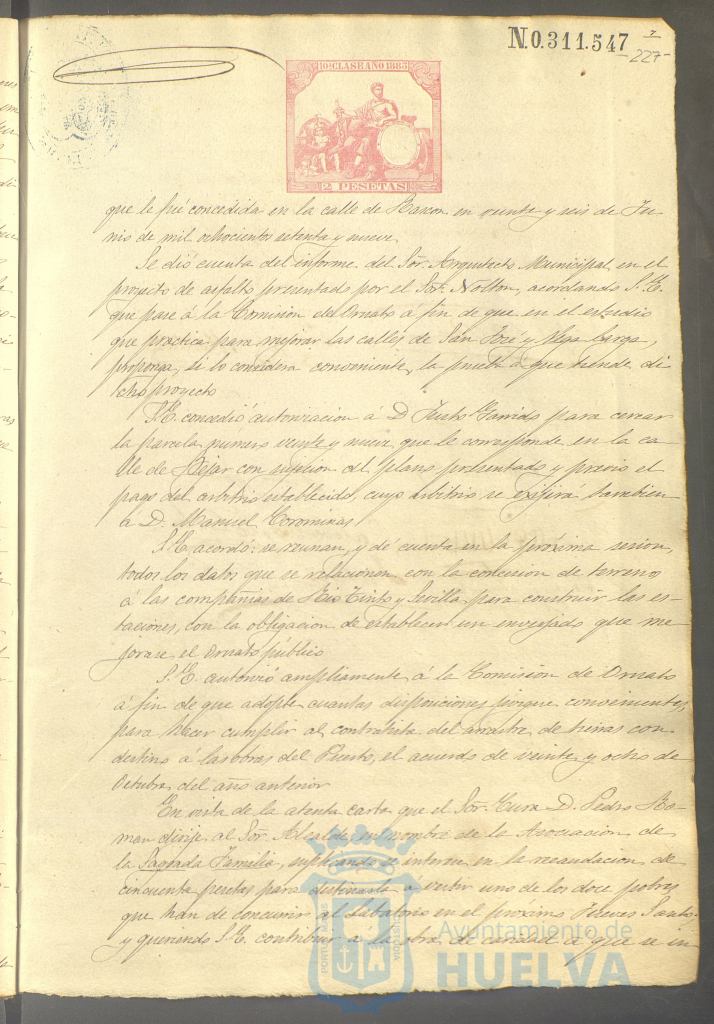 N.0.311.547
227
10ª CLASE AÑO 1883
12 PESETAS
que le fué concedida en la calle de Rascon en veinte y seis de Ju-
nio de mil ochocientos setenta y nueve.
Se dió cuenta del informe del Sor. Arquitecto Municipal en el
proyecto de asfalto presentado por el Sor. Nolton, acordando S. E.
que pase á la Comision de Ornato á fin de que en el estudio
que practica para mejorar las calles de San José y Vega Larga,
proponga, si lo considera conveniente, la prueba á que tiende di
cho proyecto
S. E. concedió autorizacion á D. Justo Garrido para cercar
la parcela numero veinte y nueve que le corresponde en la ca-
lle de Bejar con sujecion al plano presentado y previo el
pago del arbitrio establecido, cuyo arbitrio se exijirá tambien
á D. Manuel Corominas
S. E. acordó: se reunan, y dé cuenta en la proxima sesion,
todos los datos que se relacionen con la concesion de terreno
á las compañias de Rio Tinto y Sevilla para construir las es-
taciones, con la obligacion de establecer un enverjado que me
jorase el Ornato público
S. E. autorizó ampliamente á la Comision de Ornato
á fin de que adopte cuantas disposiciones juzgue convenientes,
para hacer cumplir al contratista del arrastre de tierras con
destino á las obras del Puerto, el acuerdo de veinte y ocho de
Octubre del año anterior
En vista de la atenta carta que el Sor. Cura D. Pedro Ro-
man dirije al Sor. Alcalde en nombre de la Asociacion de
la Sagrada Familia, suplicando se interese en la recaudacion de
cincuenta pesetas para destinarla á vestir uno de los doce pobres
que han de concurrir al Labatorio en el proximo Jueves Santo,
y queriendo S. E. contribuir á la obra de caridad á que se in
Ayuntamiento de
HUELVA